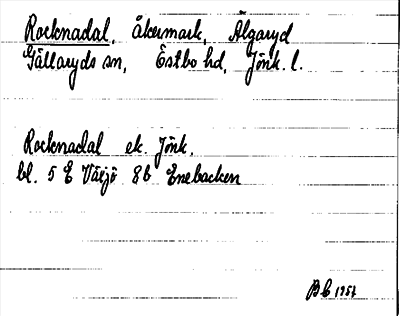 Rocknadal, åkermark, Älgaryd
Gällaryds sn, Östbo hd, Jönk. l.
Rocknadal ek. Jönk.
bl. 5 E Växjö 8b Enebacken
BE 1957